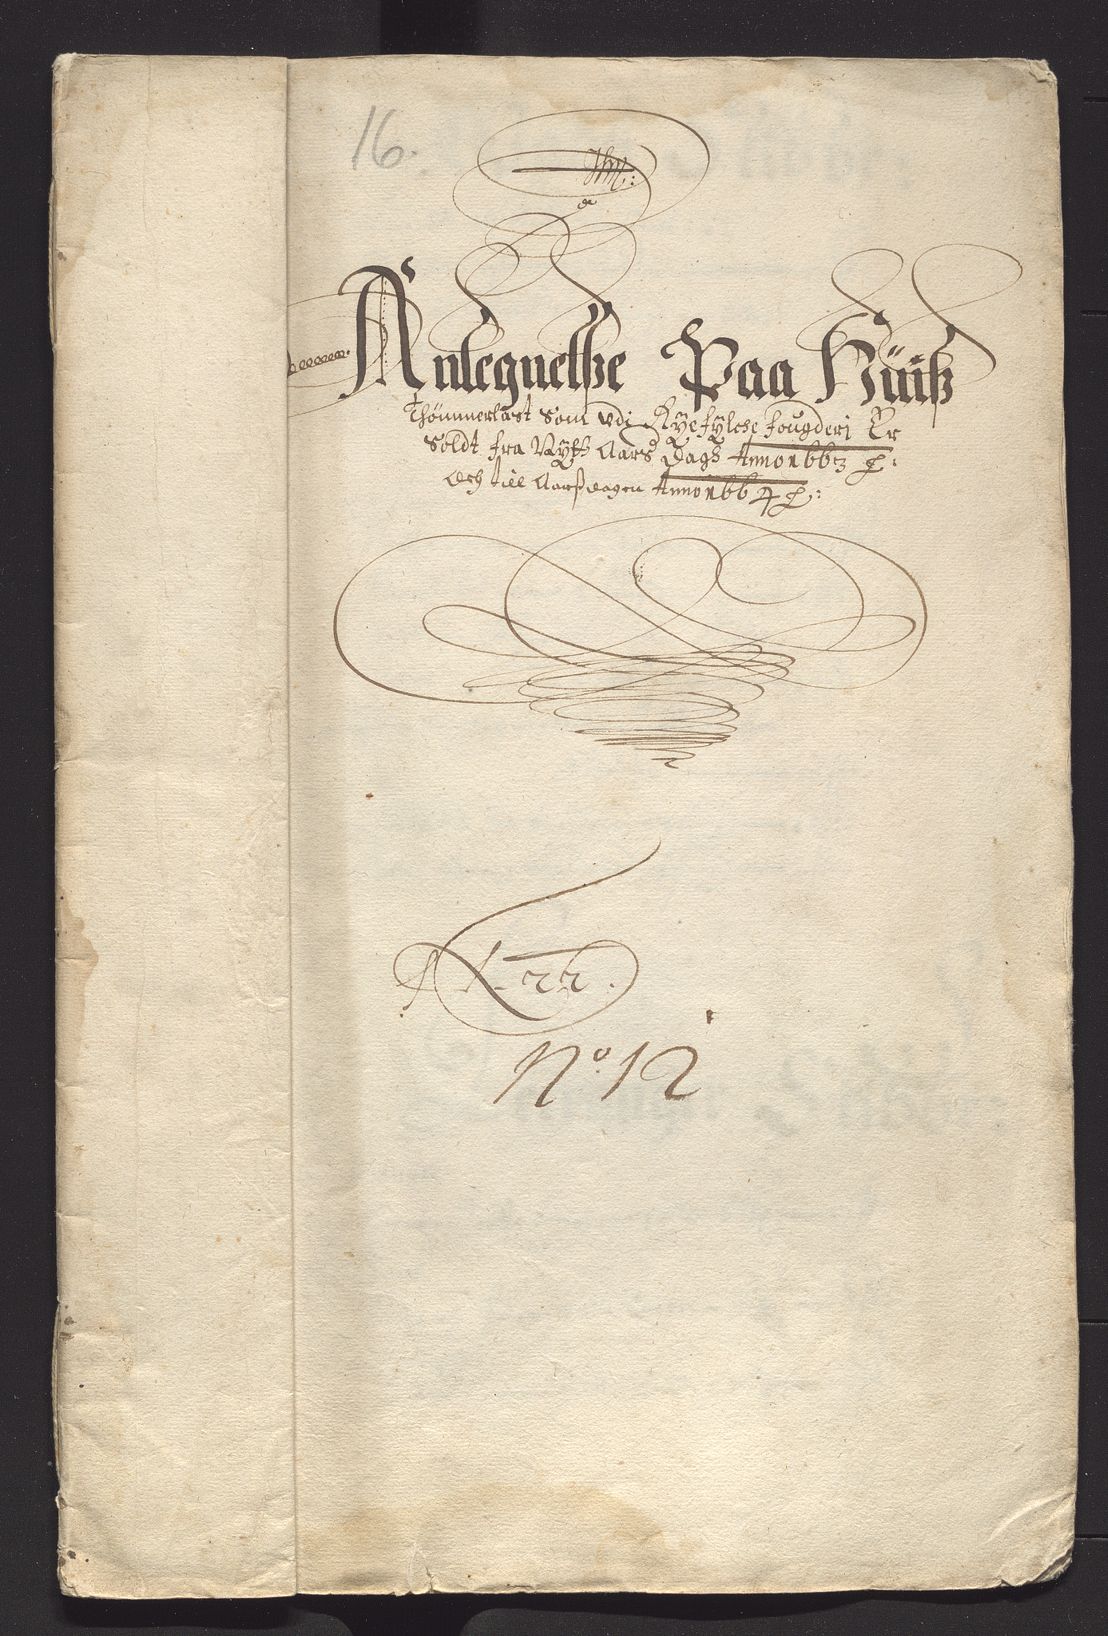 16.
Antegnelße Paa Huiß
Thömmerlast Som udi Ryefylche fougderi Er
Soldt fra Nytt Aars Dags Anno 1663
och till Aarßdagen Anno 1664
No. 12